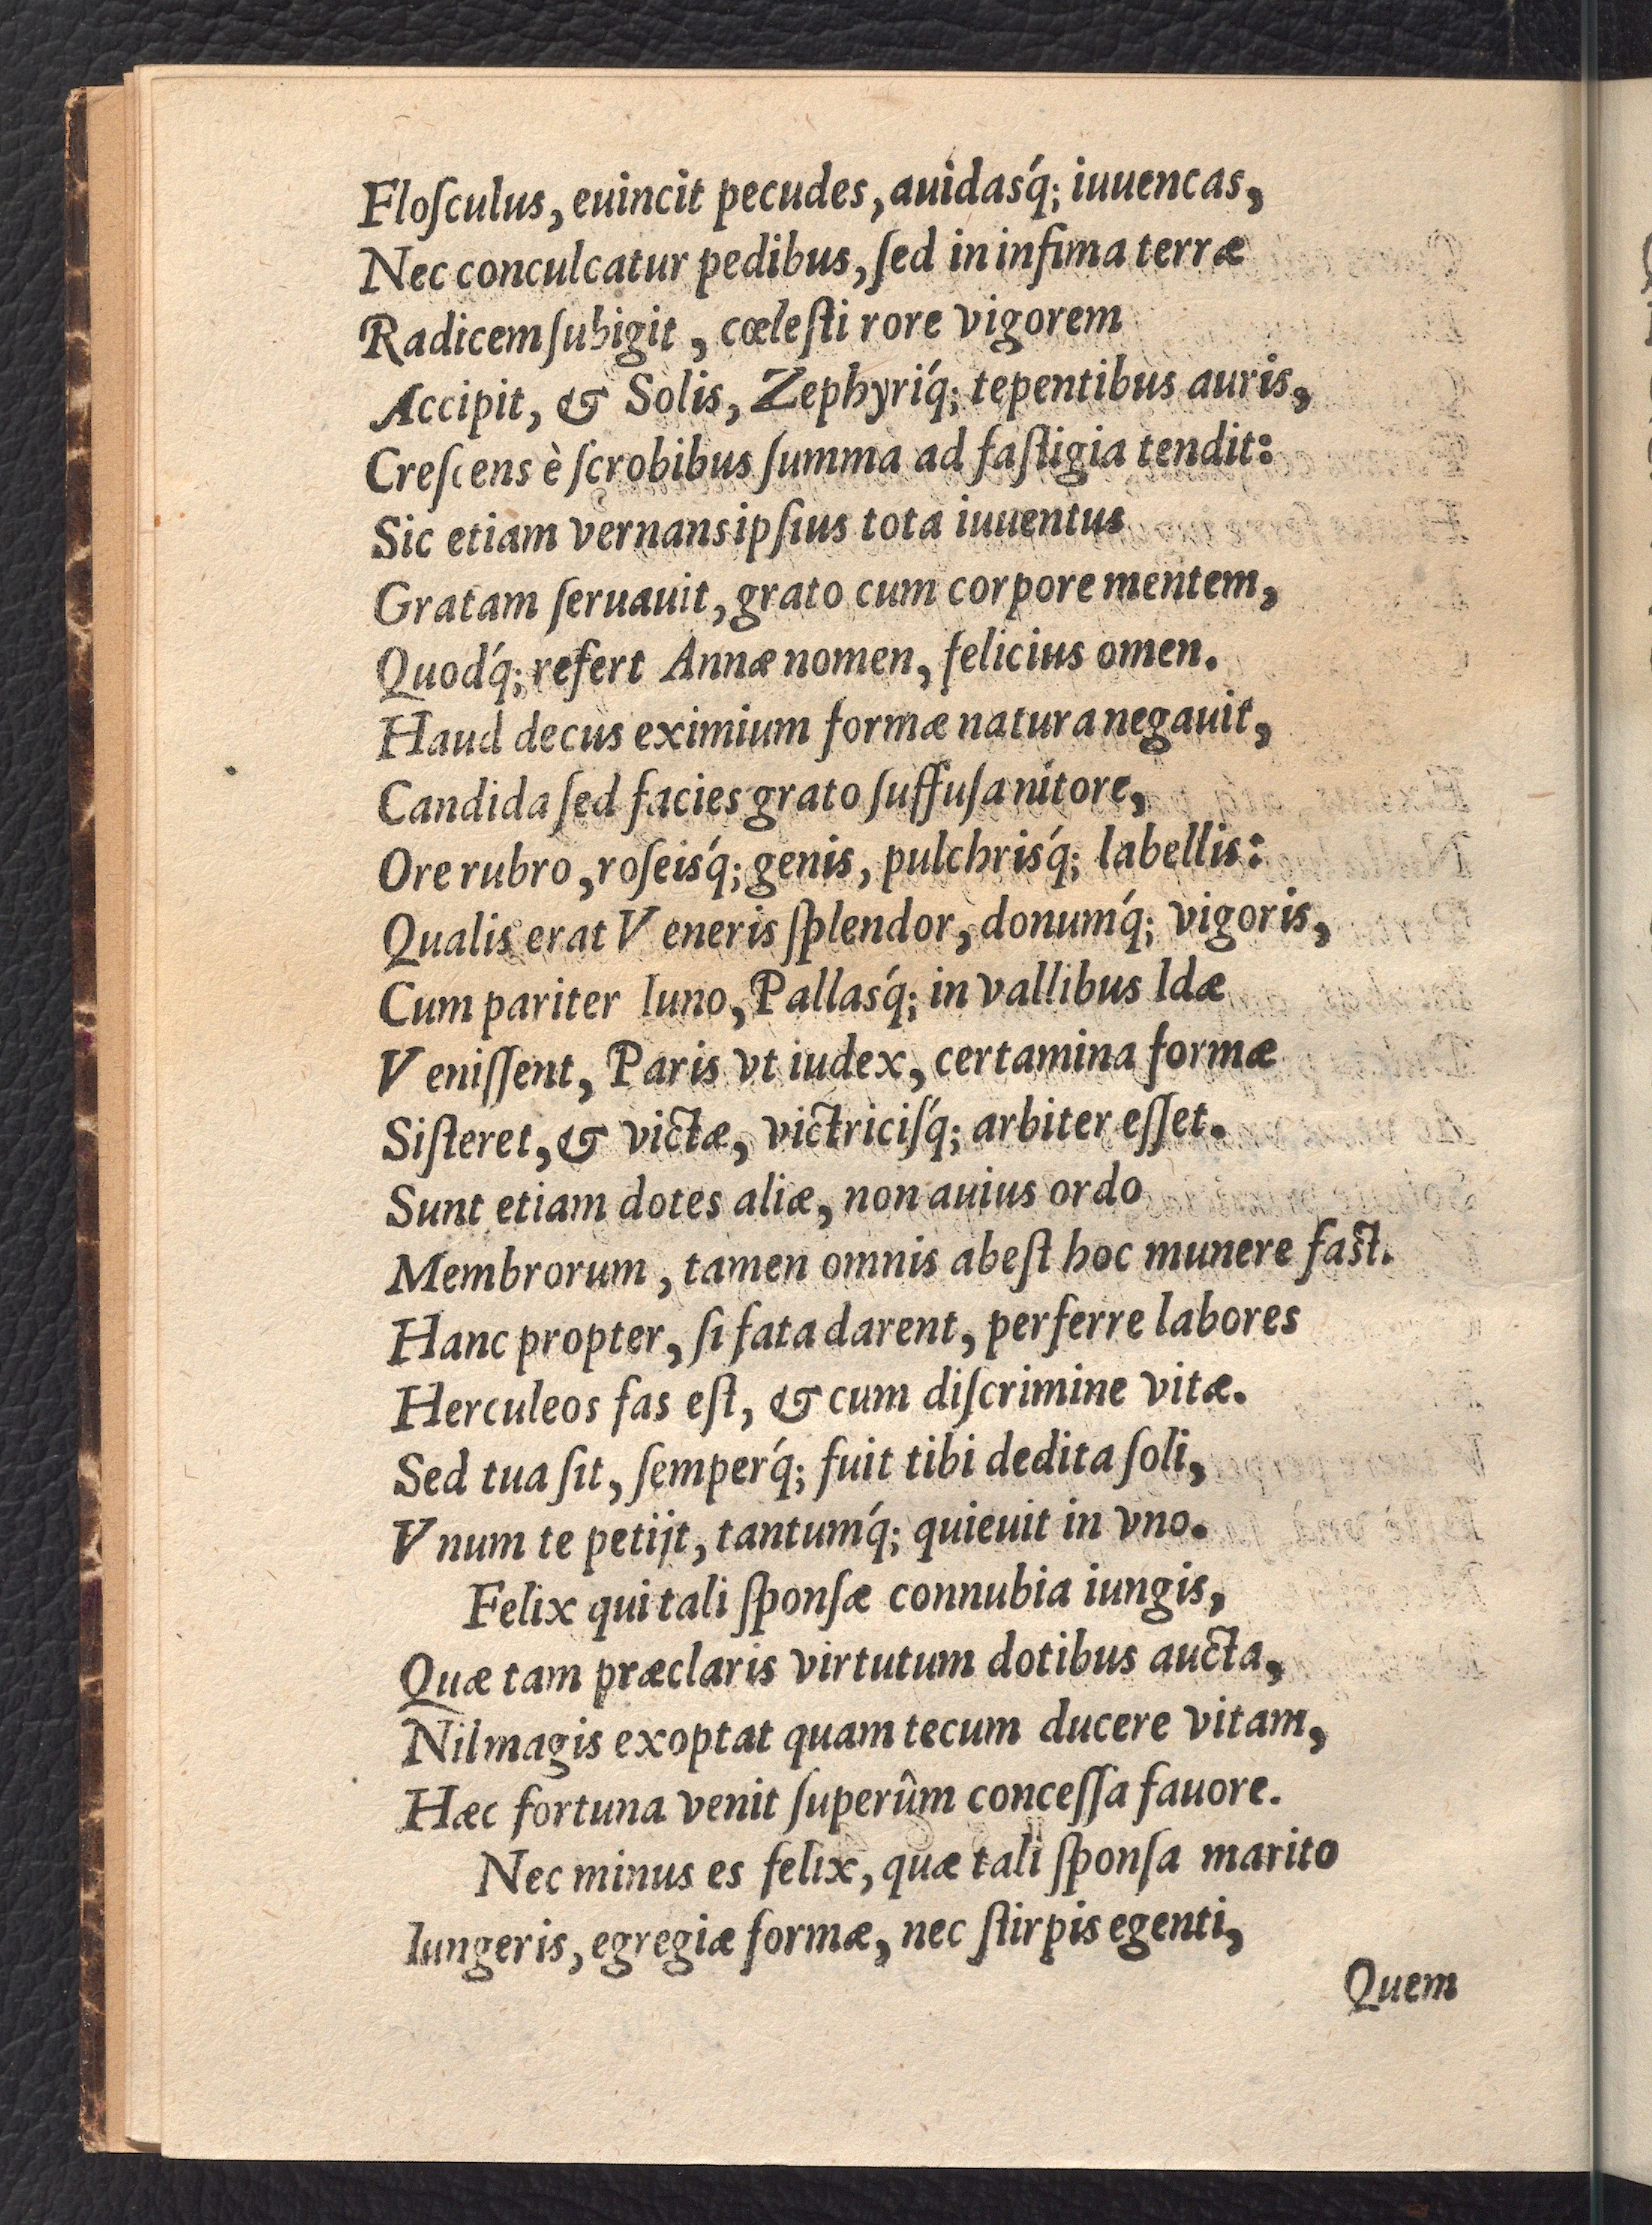 Floſculus, euincit pecudes, auidasq́; iuuencas,
Nec conculcatur pedibus, ſed in infima terræ
Radicem ſubigit, cœleſti rore vigorem
Accipit, & Solis, Zephyriq́; tepentibus auris,
Creſcens è ſcrobibus ſumma ad faſtigia tendit:
Sic etiam vernans ipſius tota iuuentus
Gratam ſeruauit, grato cum corpore mentem,
Quodq́; refert Annæ nomen, felicius omen.
Haud decus eximium formæ natura negauit,
Candida ſed facies grato ſuffuſa nitore,
Ore rubro, roſeisq́; genis, pulchrisq́; labellis:
Qualis erat Veneris ſplendor, donumq́; vigoris,
Cum pariter Iuno, Pallasq́; in vallibus Idæ
Veniſſent, Paris vt iudex, certamina formæ
Siſteret, & victæ, victriciſq́; arbiter eſſet.
Sunt etiam dotes aliæ, non auius ordo
Membrorum, tamen omnis abeſt hoc munere faſt.
Hanc propter, ſi fata darent, perferre labores
Herculeos fas eſt, & cum diſcrimine vitæ.
Sed tua ſit, ſemperq́; fuit tibi dedita ſoli,
Vnum te petijt, tantumq́; quieuit in vno.
Felix qui tali ſponſæ connubia iungis,
Quæ tam præclaris virtutum dotibus aucta,
Nil magis exoptat quam tecum ducere vitam,
Hæc fortuna venit ſuperûm conceſſa fauore.
Nec minus es felix, quæ tali ſponſa marito
Iungeris, egregiæ formæ, nec ſtirpis egenti,
Quem